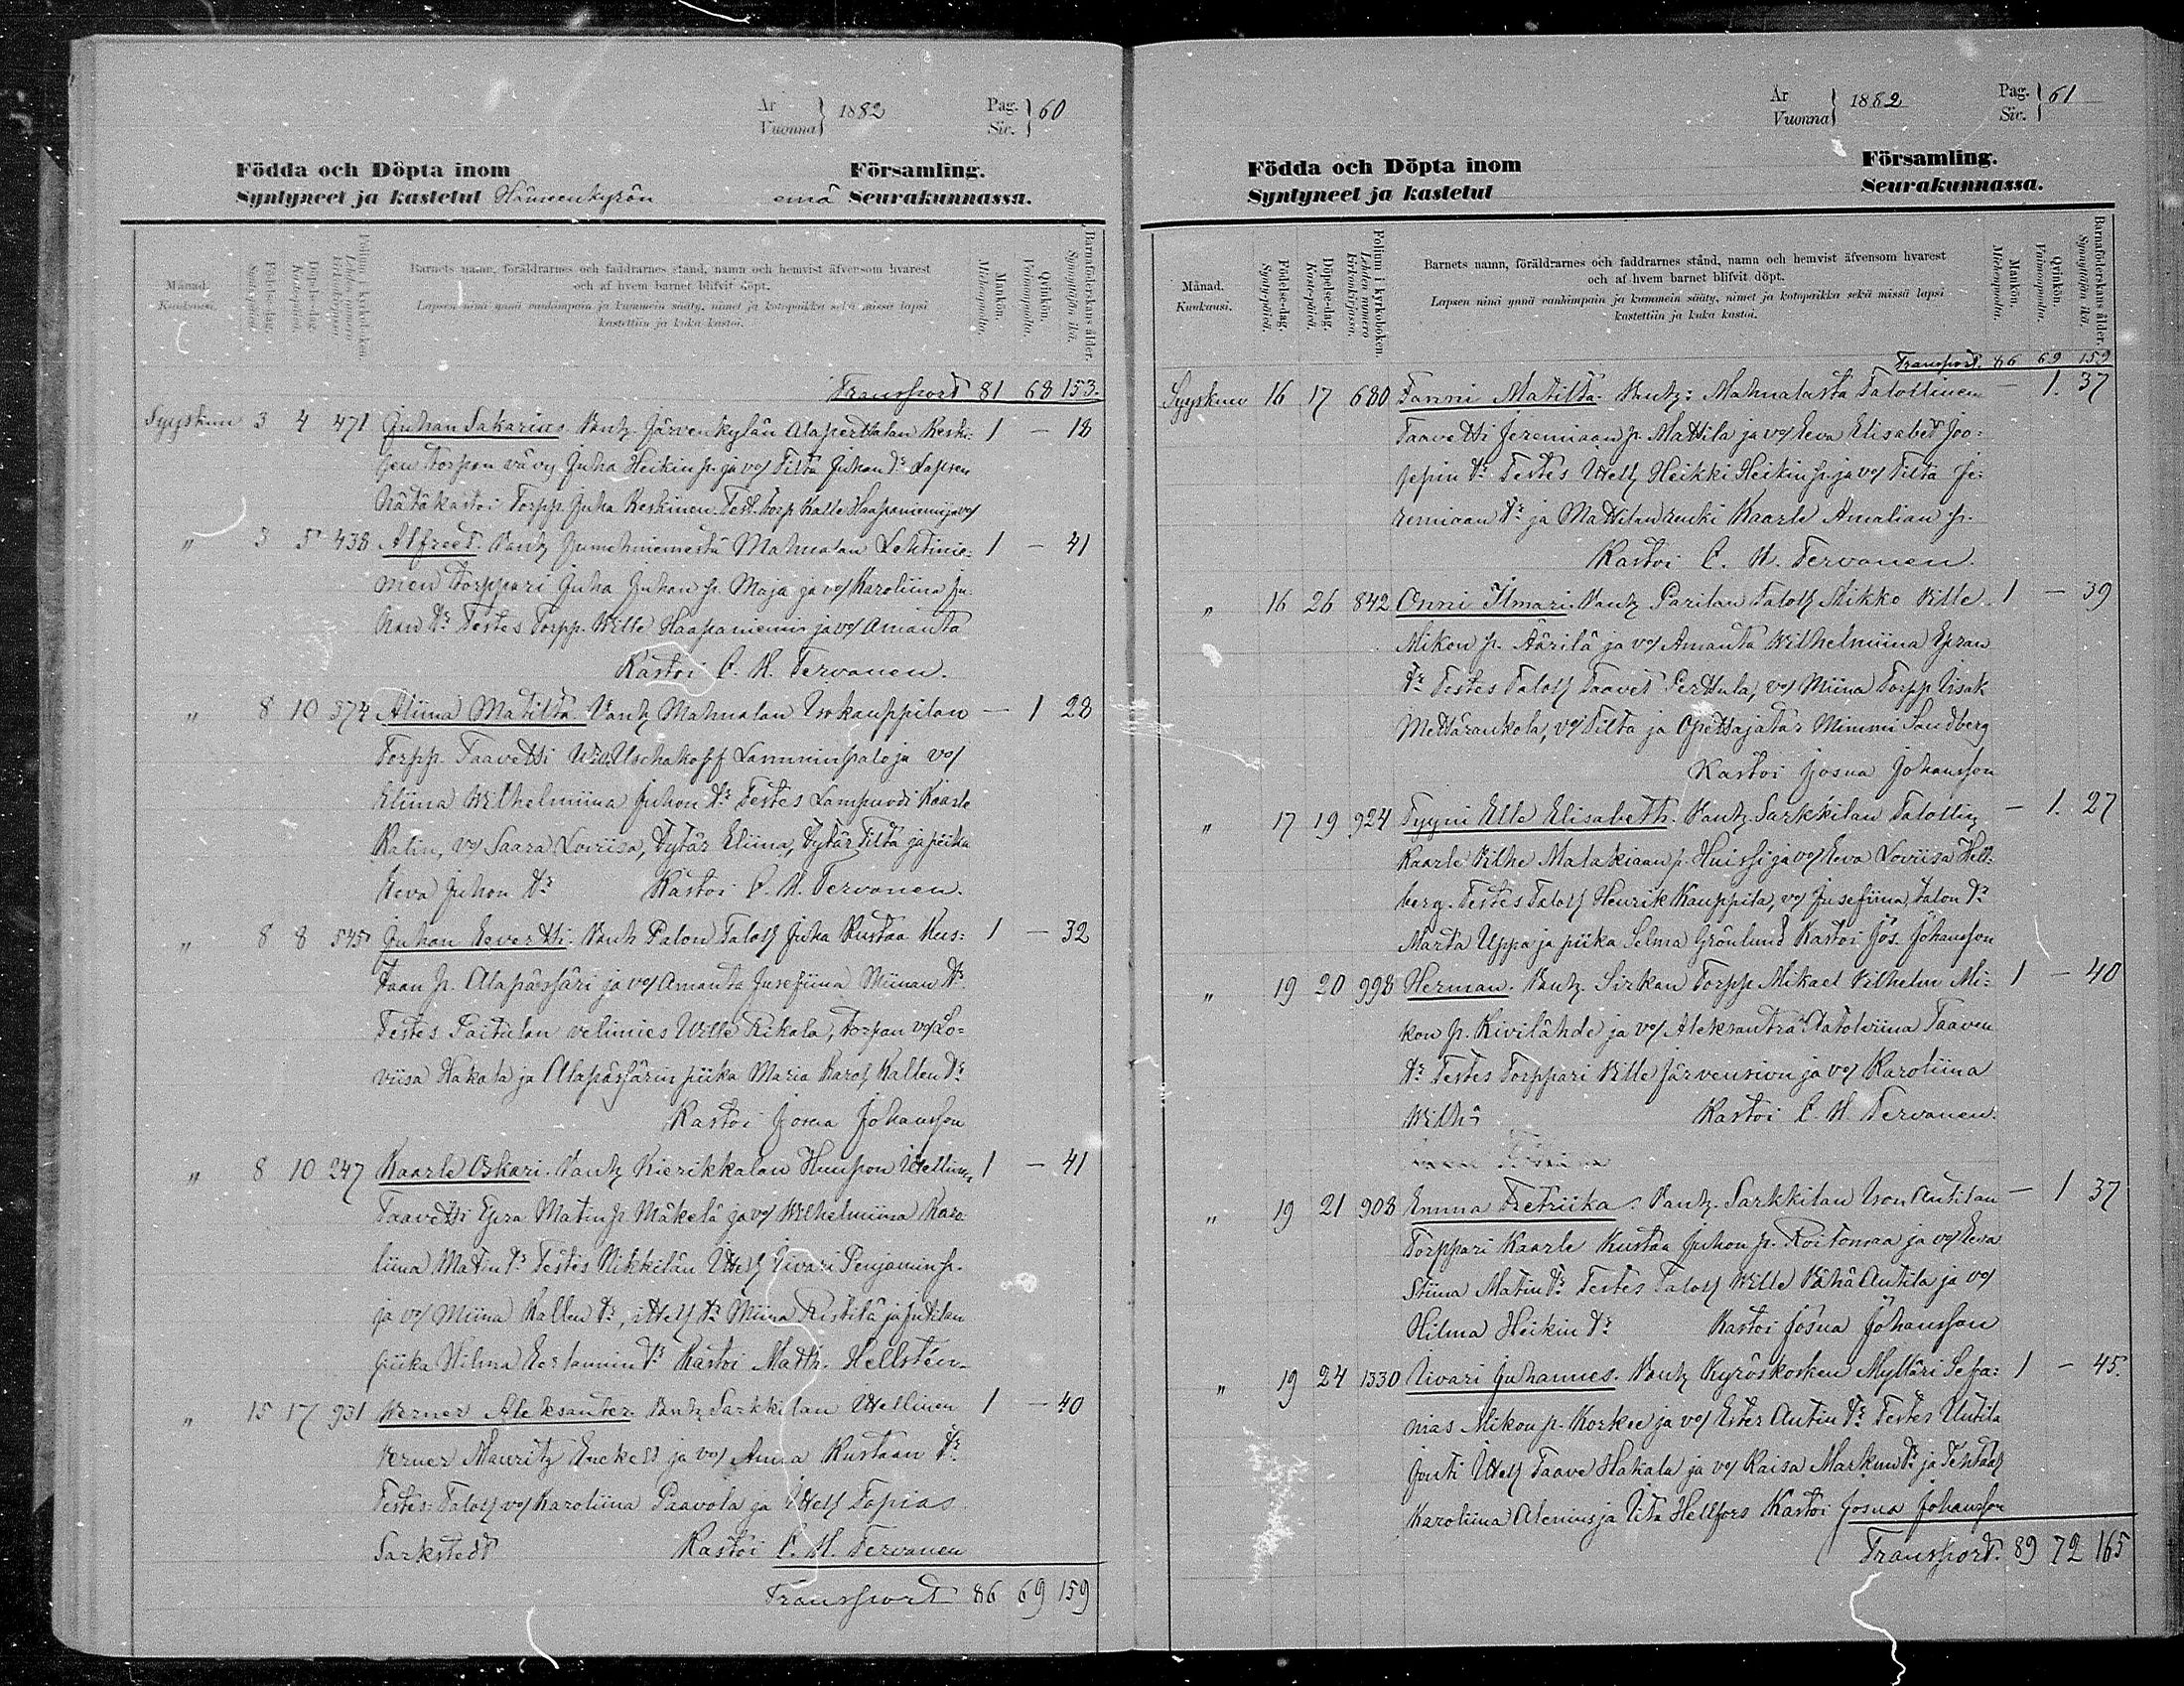 År Vuonna } 1882 Pag. Siv. } 60
Födda och Döpta inom Församling.
Syntyneet ja kastetut Hämeenkyrön emä Seurakunnassa.
Månad. Kuukausi.
Födelse-dag. Syntypäivä.
Döpelse-dag. Kastepäivä.
Folium i kyrkoboken. Lehden numero kirkonkirjassa.
Barnets namn, föräldrarnes och faddrarnes stånd, namn och hemvist äfvensom hvarest
och af hvem barnet blifvit döpt.
Lapsen nimi ynnä vanhimpain ja kummein sääty, nimet ja kotopaikka sekä missä lapsi
kastettiin ja kuka kastoi.
Mankön. Miehenpuolia.
Qvinkön. Vaimonpuolia.
Barnaföderskans ålder. Synnyttäjän ikä.
Transport 81 68 153.
Syyskuu 3 4 471 Juhan Sakarius. Vanh. Järvenkylän Alaperttalan Keski- 1 — 18
sen torpan vävy Juha Heikin p. ja vo/ Tilta Juhan tr. Lapsen
Hätäkastoi Torpp. Juha Keskinen. Test. torp Kalle Haapaniemi ja vo/
" 3 5 438 Alfreet. Vanh Mahnalan Lehtinie- 1 — 41
men torppari Juha Juhan p. Maja ja vo/ Karoliina Ju-
han tr Testes Torpp. Wille Haapaniemi ja vo/ Amanta
Kastoi C. H. Tervonen.
" 8 10 574 Aliina Matilta. Vanh Mahnalan Isokauppilan — 1 28
Torpp. Taavetti Uschakoff Lamminpalo ja vo/
Eliina Wilhelmiina Juhon tr Testes Lampuodi Kaarle
Ratin, vo/ Saara Loviisa, tytär Eliina, tytär Tilta ja piika
Eeva Juhon tr Kastoi C. H. Tervonen.
" 8 8 545 Juhan Eevertti. Vanh Palon Taloll Juha Kustaa Kus- 1 — 32
taan p. Alapässäri ja vo/ Amanta Jusefiina Miinan tr
Testes Paitulan velimies Wille Rikala, torpan vo/ Lo-
viisa Hakala ja Alapässärin piika Maria Karol Kallen tr
Kastoi Josua Johansson
" 8 10 247 Kaarle Oskari. Vanh Kierikkalan Huupon Itellinen 1 — 41
Taavetti Epra Matin p. Mäkelä ja vo/ Wilhelmiina Karo-
liina Matin tr Testes Nikkilän Itell Iivari Penjamin p.
ja vo/ Miina Kallen tr, itell tr Miina Ristilä ja Jutilan
piika Hilma Eerlannin tr Kastoi Matth. Hellstén
" 15 17 931 Werner Aleksanter. Vanh Sarkkilan Itellinen 1 — 40
Verner Mauritz Enckell ja vo/ Anna Kustaan tr
Testes: Taloll vo/ Karoliina Paavola ja Itell Topias
Sarkstedt Kastoi C. H. Tervonen
Transport 86 69 159
År Vuonna } 1882 Pag. Siv. } 61
Födda och Döpta inom Församling.
Syntyneet ja kastetut Seurakunnassa.
Månad. Kuukausi.
Födelse-dag. Syntypäivä.
Döpelse-dag. Kastepäivä.
Folium i kyrkoboken. Lehden numero kirkonkirjassa.
Barnets namn, föräldrarnes och faddrarnes stånd, namn och hemvist äfvensom hvarest
och af hvem barnet blifvit döpt.
Lapsen nimi ynnä vanhimpain ja kummein sääty, nimet ja kotopaikka sekä missä lapsi
kastettiin ja kuka kastoi.
Mankön. Miehenpuolia.
Qvinkön. Vaimonpuolia.
Barnaföderskans ålder. Synnyttäjän ikä.
Transport. 86 69 159
Syyskuu 16 17 680 Fanni Matilta. Vanh: Mahnalasta Talollinen — 1. 37
Taavetti Jeremiaan p. Mattila ja vo/ Eeva Elisabet Joo-
seppin tr Testes Itell Heikki Heikin p. ja vo/ Tilta Je-
remiaan tr ja Mattilan renki Kaarle Amalian p.
Kastoi C. H. Tervonen.
" 16 26 842 Onni Ilmari. Vanh Parilan Taloll Mikko Ville 1 — 39
Mikon p. Äärilä ja vo/ Amanta Wilhelmiina Epran
tr Testes Taloll Taavet Perttula, vo/ Miina Torpp Iisak
Mettärankola, vo/ Tilta ja Opettajatar Mimmi Sandberg
Kastoi Josua Johansson
" 17 19 924 Tyyni Elle Elisabeth. Vanh. Sarkkilan Talollin — 1. 27
Kaarle Vilhe Malakiaan p. Huissi ja vo/ Eeva Loviisa Hell-
berg. Testes Taloll Henrik Kauppila, vo/ Jusefiina, talon tr
Marta Uppa ja piika Selma Grönlund Kastoi Jos. Johansson
" 19 20 998 Herman. Vanh. Sirkan Torpp Mikael Vilhelm Mi- 1 — 40
kon p. Kivilähde ja vo/ Aleksantra Aatoleriina Taaven
tr Testes Torppari Ville Järvensivu ja vo/ Karoliina
Wilh. Kastoi C. H. Tervonen.
" 19 21 908 Emma Fetriika. Vanh. Sarkkilan Ison Antilan — 1 37
Torppari Kaarle Kustaa Juhon p. Koitomaa ja vo/ Eeva
Stiina Matin tr Testes Taloll Wille VähäAntila ja vo/
Hilma Heikin tr Kastoi Josua Johansson
" 19 24 1330 Iivari Juhannes. Vanh Kyröskosken Mylläri Sefa- 1 — 45.
nias Mikon p. Korkee ja vo/ Ester Antin tr Testes Uutila
Itell Taave Hakala ja vo/ Kaisa Markun tr ja
Karoliina Alenius ja Iita Hellfors Kastoi Josua Johansson
Transport. 89 72 165